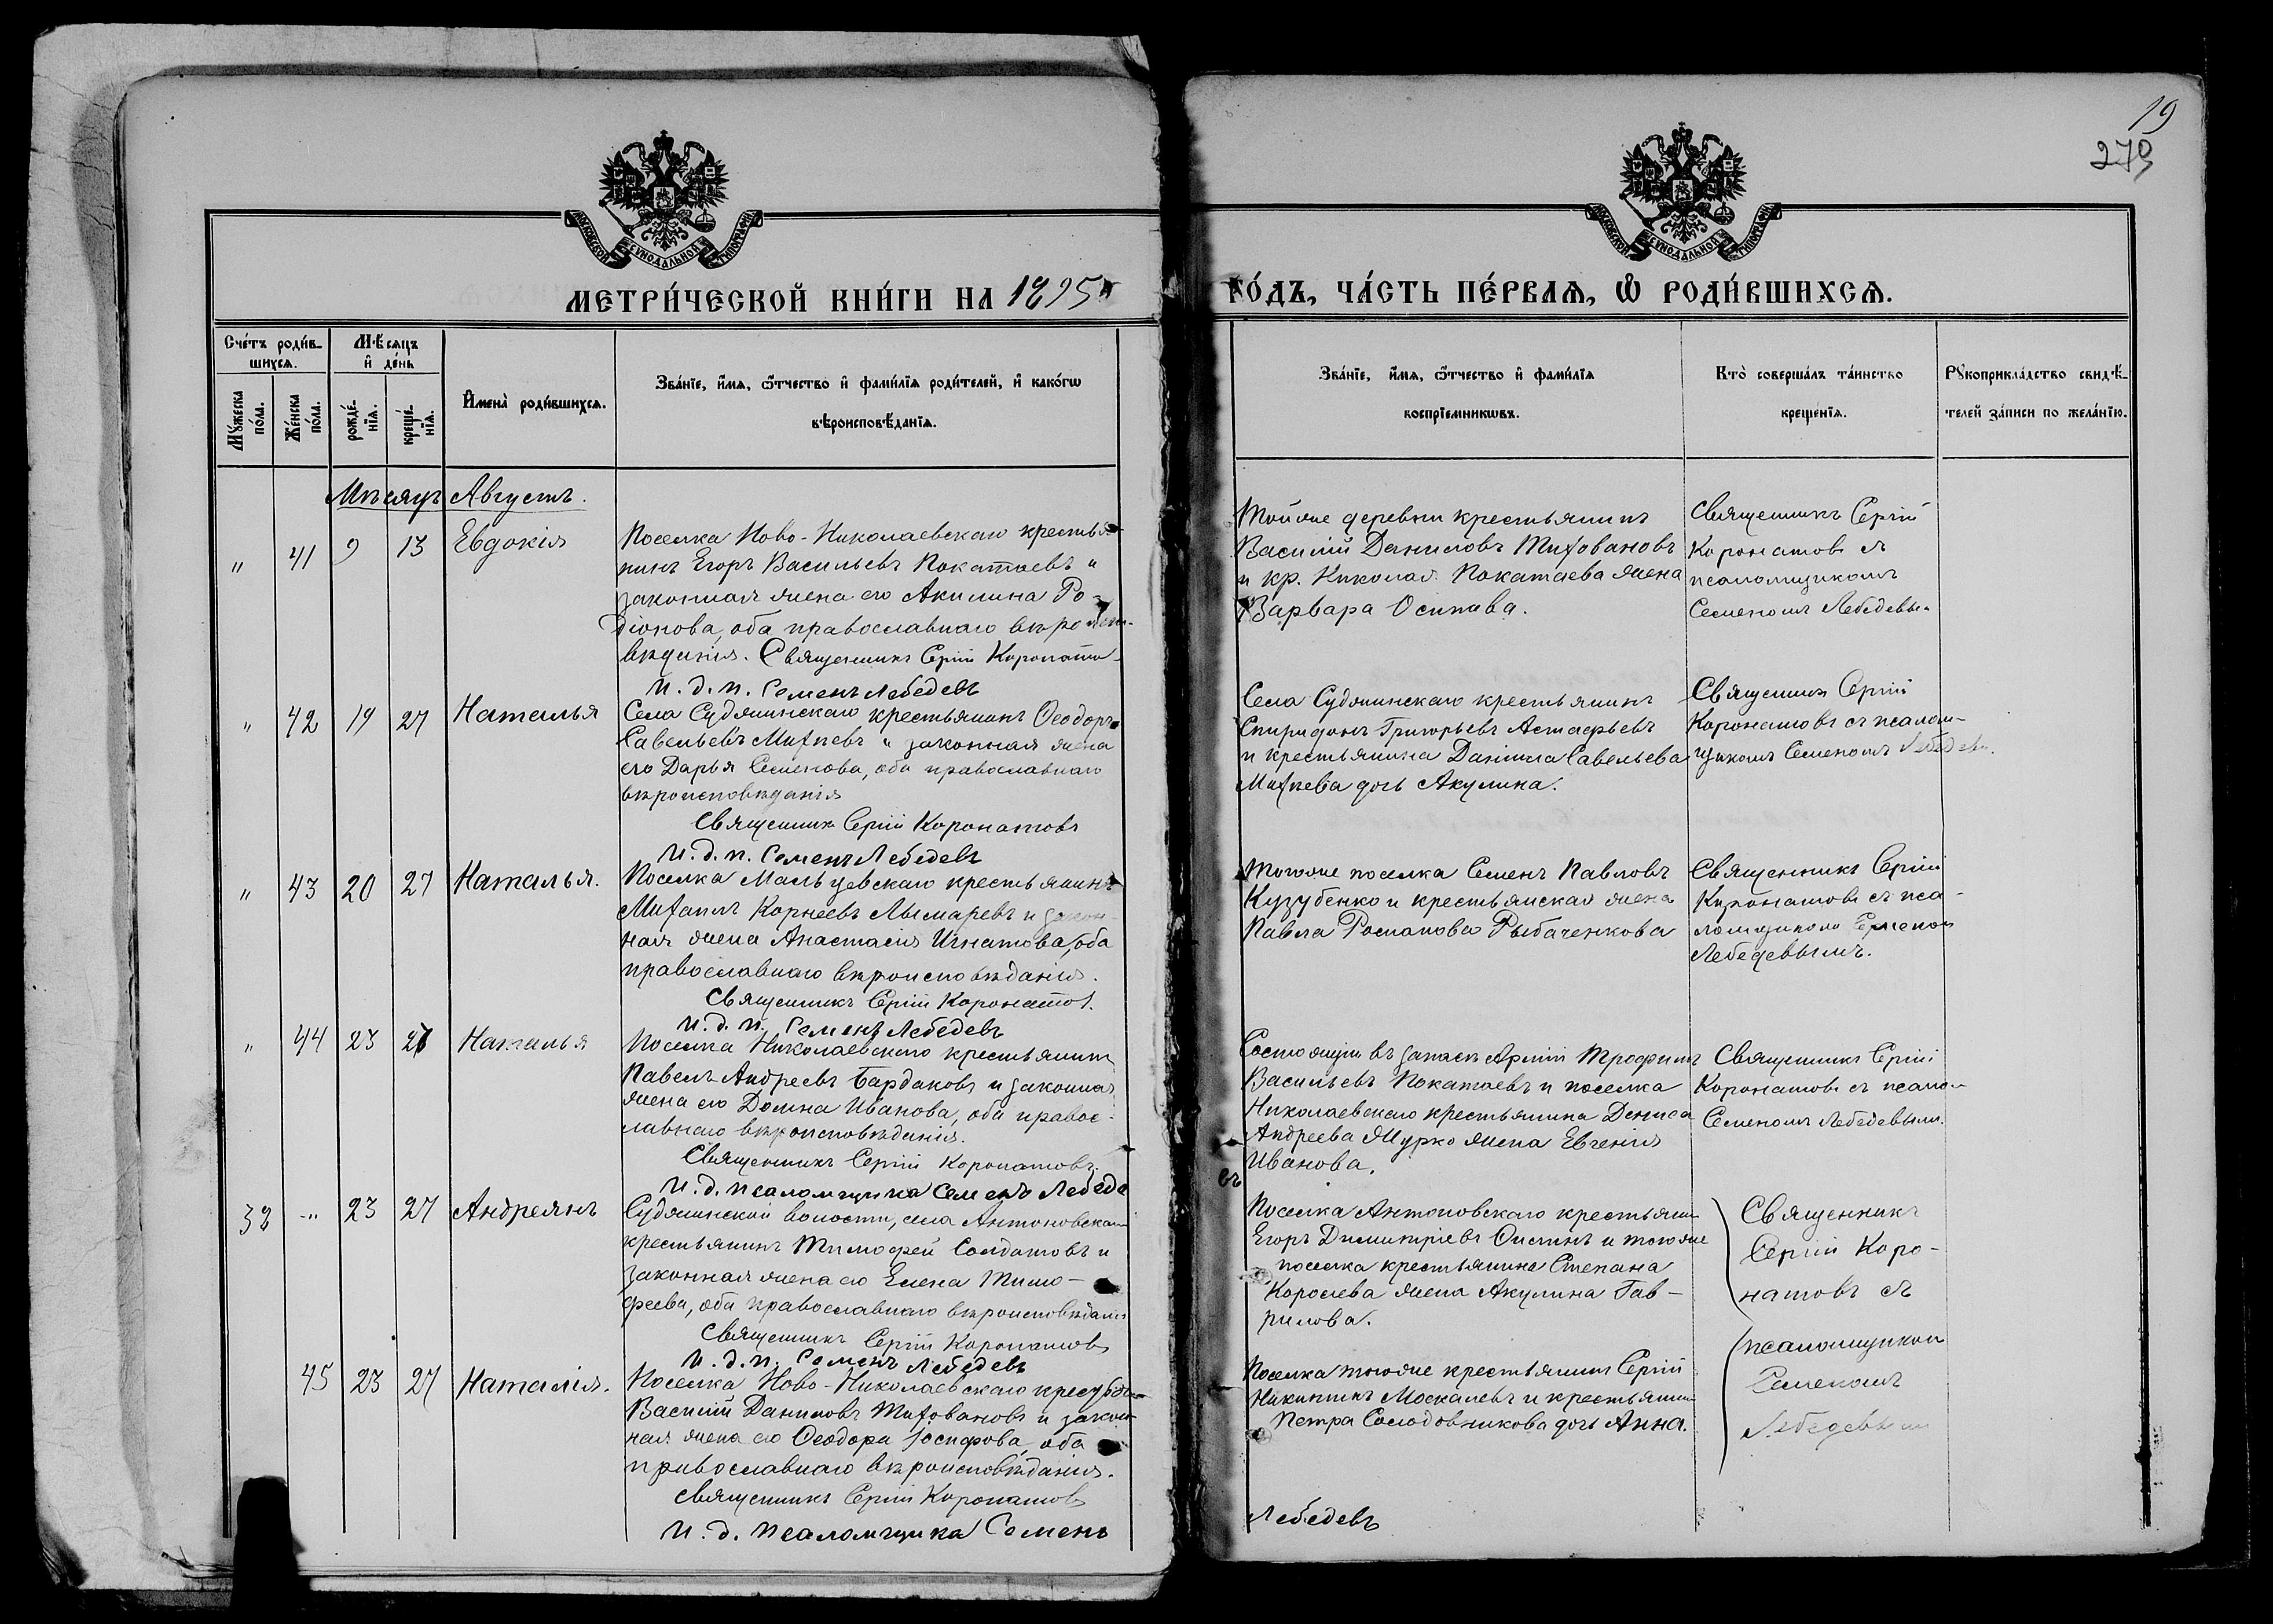 19
270
МОСКОВСКОЙ СѴНОДАЛЬНОЙ ТИПОГРАФІИ
МОСКОВСКОЙ СѴНОДАЛЬНОЙ ТИПОГРАФІИ
МЕТРИ́ЧЕСКОЙ КНИ́ГИ НА 1895
ГО́ДЪ, ЧА́СТЬ ПЕ́РВАѦ, Ѽ РОДИ́ВШИХСѦ.
Сче́тъ роди́в-
шихсѧ.
Мѣ́сѧцъ
и҆ де́нь
Мꙋ́жеска
по́ла.
Же́нска
по́ла.
рожде́-
нїѧ.
креще́-
нїѧ.
И҆мена̀ роди́вшихсѧ.
Зва́нїе, и҆́мѧ, ѻ҆́тчество и҆ фами́лїѧ роди́телей, и҆ како́гѡ
вѣроисповѣ́данїѧ.
Зва́нїе, и҆́мѧ, ѻ҆́тчество и҆ фами́лїѧ
воспрїемникѡвъ.
Кто̀ соверша́лъ та́инство
креще́нїѧ.
Рꙋкоприкла́дство свидѣ́-
телей за́писи по жела́нїю.
Мѣсяцъ Августъ.
" 41 9 13 Евдокія
Поселка Ново-Николаевскаго крестья-
нинъ Егоръ Васильевъ Покатаевъ и
законная жена его Акилина Ро-
діонова, оба православнаго вѣроиспо-
вѣданія. Священникъ Сергій Коронатов
И. д. п. Семенъ Лебедевъ
Тойже деревни крестьянинъ
Василій Даниловъ Тихановъ
и кр. Николая Покатаева жена
Варвара Осипова.
Священникъ Сергій
Коронатовъ съ
псаломщикомъ
Семеномъ Лебедевы
" 42 19 27 Наталья
Села Судженскаго крестьянинъ Ѳеодоръ
Савельевъ Михневъ и законная жена
его Дарья Семенова, оба православнаго
вѣроисповѣданія
Священник Сергій Коронатовъ
И. д. п. Семенъ Лебедевъ
Села Судженскаго крестьянинъ
Спиридонъ Григорьевъ Астафьевъ
и крестьянина Даніила Савельева
Михнева дочь Акулина.
Священник Сергій
Коронатовъ съ псалом-
щикомъ Семеномъ Лебедев
" 43 20 27 Наталья.
Поселка Мальцевскаго крестьянинъ
Михаилъ Корнеевъ Лымаревъ и закон-
ная жена Анастасія Игнатова, оба
православнаго вѣроисповѣданія.
Священникъ Сергій Коронатов.
И. д. п. Семенъ Лебедевъ
Тогоже поселка Семенъ Павловъ
Кузубенко и крестьянская жена
Павла Романова Рыбаченкова
Священникъ Сергій
Коронатовъ съ пса-
ломщикомъ Семеном
Лебедевымъ.
" 44 23 27 Наталья
Поселка Николаевскаго крестьянинъ
Павелъ Андреевъ Бардаковъ и законная
жена его Домна Иванова, оба правос-
лавнаго вѣроисповѣданія.
Священникъ Сергій Коронатовъ.
И. д. псаломщика Семенъ Лебеде
Состоящій въ запасѣ арміи Трофимъ
Васильевъ Покатаевъ и поселка
Николаевскаго крестьянина Дениса
Андреева Мурко жена Евгенія
Иванова.
въ
Священникъ Сергій
Коронатовъ съ псалом
Семеномъ Лебедевым.
32 -" 23 27 Андреянъ
Судженской волости, села Антоновскаго
крестьянинъ Тимофей Солдатовъ и
законная жена его Елена Тимо-
феева, оба православнаго вѣроисповѣданія
Священникъ Сергій Коронатовъ
И. д. п. Семенъ Лебедевъ
Поселка Антоновскаго крестьянин
Егоръ Димитріевъ Онгинъ и тогоже
поселка крестьянина Степана
Королева жена Акулина Гав-
рилова.
Священникъ
Сергій Коро-
натовъ съ
45 23 27 Наталія.
Поселка Ново-Николаевскаго крестьян
Василій Даниловъ Тихановъ и закон-
ная жена его Ѳеодора Іосифова, оба
православнаго вѣроисповѣданія.
Священникъ Сергій Коронатовъ
И. д. псаломщика Семенъ
Поселка тогоже крестьянинъ Сергій
Никитинъ Москалевъ и крестьянин
Петра Солодовникова дочь Анна.
псаломщиком
Семеномъ
Лебедевым
Лебедевъ